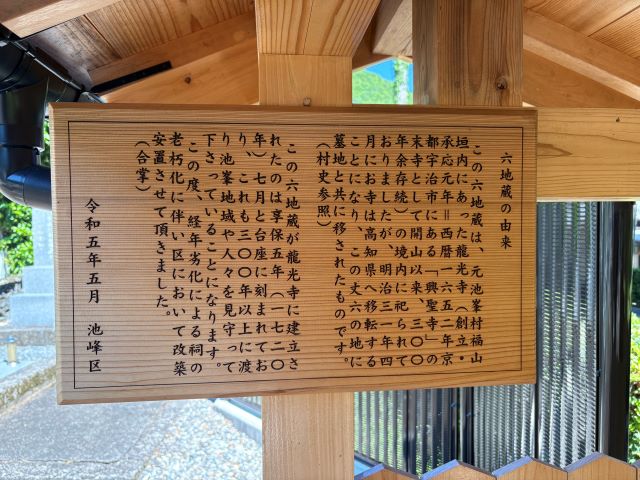 六地蔵の由来
この六地蔵は、元池峯村福山
垣内にあった龍光寺（創立・
承応元年＝西暦一六五二年京
都宇治市にある「興聖寺」の
末寺として開山以来、三〇〇
年余存続）の境内に祀られて
おりましたが、明治三一年四
月にお寺は高知県へ移転する
ことになり、この丈六の地に
墓地と共に移されたものです。
（村史参照）
この六地蔵が龍光寺に建立さ
れたのは享保五年（一七二〇
年）七月と台座に刻まれてお
り、これも三〇〇年以上に渡
り池峯地域や人々を見守って
下さっていることになります。
この度、経年劣化による祠の
老朽化に伴い区において改築
安置させて頂きました。
（合掌）
令和五年五月　池峰区